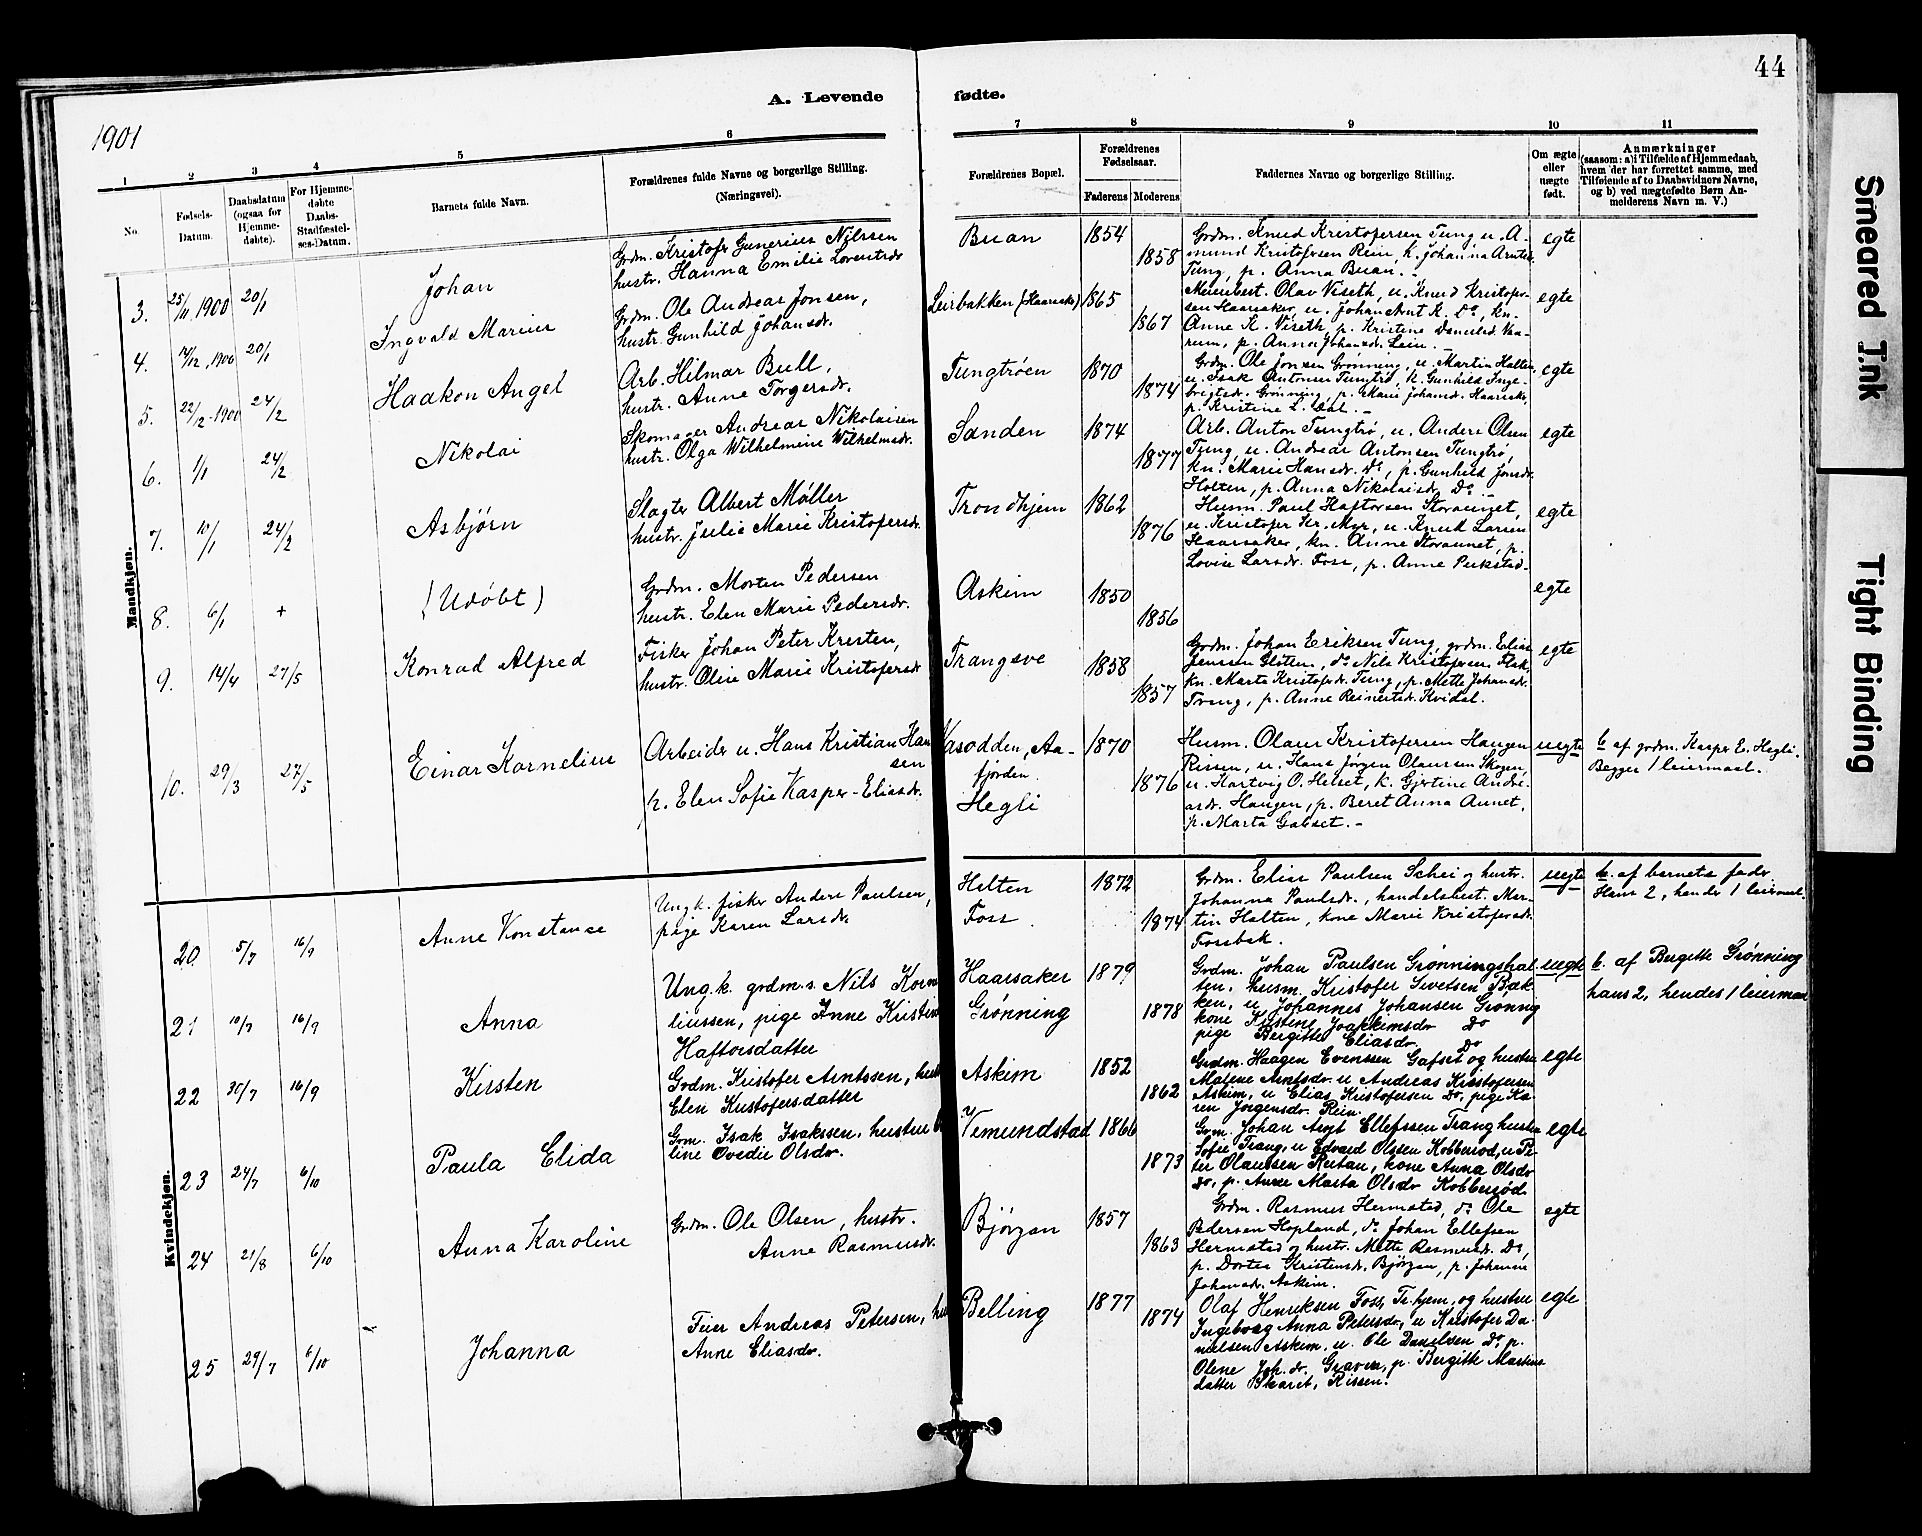 44
A. Levende fødte.
1901
1 2 3 4 5 6 7 8 9 10 11
No.
Fødsels-Datum.
Daabsdatum (ogsaa for Hjemme-døbte).
For Hjemme-døbte Daabs-Stadfæstel-ses-Datum.
Barnets fulde Navn.
Forældrenes fulde Navne og borgerlige Stilling.
(Næringsvei).
Forældrenes Bopæl.
Forældrenes Fødselsaar.
Faderens Moderens
Faddernes Navne og borgerlige Stilling.
Om ægte eller uægte født.
Anmærkninger
(saasom: a) i Tilfælde af Hjemmedaab,
hvem der har forrettet samme, med
Tilføiende af to Daabsvidners Navne,
og b) ved uægtefødte Børn An-
melderens Navn m. V.)
Mandkjøn.
3. 25/11 1900 20/1 Johan
Grdm. Kristofer Gunerius Nilssen
hustr. Hanna Emilie Lorentsdr
Buan 1854 1858
Grdm. Knud Kristofersen Tung, u. A-
mund Kristofersen Rein, k. Johanna Arntsdr.
Tung, p. Anna Buan. -
egte
4. 20/1 Ingvald Marius
Grdm. Ole Andreas Jonsen,
hustr. Gunhild Johansdr.
Leirbakken (Haarsaker) 1865 1867
Meieribest. Olav Viseth, u. Knud Kristofer-
sen Haarsaker, u. Johan Arnt K. Do, kn.
Anne K. Viseth, p. Kristine Danielsd. Vaa-
rum, p. Anna Johansdr. Lein. -
egte
5. 22/12 1900 24/2 Haakon Angel
Arb. Hilmar Bull,
hustr. Anne Torgersdr.
Tungtrøen 1870 1874
Grdm. Ole Jonsen Grønning, u. Martin Halten,
u. Isak Antonsen Tungtrø, k. Gunhild Inge-
brigtsdr. Grønning, p. Marie Johansdr. Haarsaker,
p. Kristine L. Dal. -
egte
6. 1/1 24/2 Nikolai
Skomager Andreas Nikolaisen
hustr. Olga Wilhelmine Wilhelmsdr.
Sanden 1874 1877
Arb. Anton Tungtrø, u. Anders Olsen
Tung, u. Andreas Antonsen Tungtrø,
kn. Marie Hansdr. Do, p. Gunhild Jonsdr.
Holten, p. Anna Nikolaisdr. Do. -
egte
7. 10/1 24/2 Asbjørn
Slagter Albert Møller
hustr. Julie Marie Kristofersdr.
Trondhjem 1862 1876
Husm. Paul Haftorsen Storaunet,
u. Kristofer Kr. Myr, u. Knud Larsen
Haarsaker, kn. Anne Storaunet, p.
Lovise Larsdr. Foss, p. Anne Pukstad.
egte
8. 6/1 + (Udøbt)
Grdm. Morten Pedersen
hustr. Elen Marie Pedersdr.
Askim 1850 1856
egte
9. 14/4 27/5 Konrad Alfred
Fisker Johan Peter Kresten,
hustr. Oline Marie Kristofersdr
Trangsve 1858 1857
Grdm. Johan Eriksen Tung, grdm. Elias
Jenssen Sliten, do Nils Kristofersen Flak,
kn. Marta Kristofersdr. Tung, p. Mette Johansdr.
Trang, p. Anne Reinertsdr. Kvidal.
egte
10. 29/3 27/5 Einar Kornelius
Arbeider u. Hans Kristian Han
sen
p. Elen Sofie Kasper-Eliasdr.
Vasodden, Aa-
fjorden.
Hegli
1870 1876
Husm. Olaus Kristofersen Haugen
Rissen, u. Hans Jørgen Olaussen Skogen,
u. Hartvig O. Helset, k. Gjertine Andre-
asdr. Haugen, p. Beret Anna Aunet,
p. Marta Gabset. -
uegte
b. af grdm. Kasper E. Hegli.
Begges 1 leiermaal.
Kvindekjøn.
20 5/7 16/9 Anne Konstanse
Ungk. fisker Anders Paulsen,
pige Karen Larsdr
Halten
Foss
1872 1874
Grdm. Elias Paulsen Schei og hustr.
Johanna Paulsdr., handelsbest. Mar-
tin Halten, kone Marie Kristofersdr.
Fossbak.
uegte
b. af barnets fader
Hans 2, hendes 1 leiermaal.
21 10/7 16/9 Anna
Ung.k. grdm.s. Nils Korne
liussen, pige Anne Kristine
Haftorsdatter
Haarsaker
Grønning
1879 1878
Grdm. Johan Paulsen Grønningshal-
ten, husm. Kristofer Sivetsen Bak-
ken, u. Johannes Johansen Grønng
kone Kirstene Joakkemsdr Do
pige Bergitte Eliasdr. Do
uegte
b. af Birgitte Grønning
hans 2, hendes 1 leiermaal
22 30/7 16/9 Kirsten
Grdm. Kristofer Arntssen, hust
Elen Kristofersdatter
Askim 1852 1862
Grdm. Haagen Evenssen Gafset og hustru
Malene Arntsdr. u Andreas Kristofersen
Askim, u Elias Kristofersen Do, pige Ka-
ren Jørgensdr. Rein.
egte
23 24/7 6/10 Paula Elida
Grm. Isak Isakssen, hustru
line Ovedie Olsdr.
Vemundstad 1866 1873
Grm. Johan Arnt Ellefssen Trang hustru
Sofie Trang, u Edvard Olssen Kobberød, u Pe-
ter Olaussen Reitan, kone Anna Olsdr
do, p. Anne Marta Olsdr Kobberød.
egte
24 21/8 6/10 Anna Karoline
Grdm. Ole Olsen, hustr.
Anne Rasmusdr.
Bjørgan 1857 1863
Grdm. Rasmus Hermstad, do Ole
Pedersen Hopland, do Johan Ellefsen
Hermstad og hustr. Mette Rasmusdr. Do,
p. Dortea Kristensdr. Bjørgan, p. Johanne
Johansdr. Askim.
egte
25 29/7 6/10 Johanna
Feier Andreas Petersen, hu
Anne Eliasdr.
Belling 1877 1874
Olaf Henriksen Foss, Tr.hjem, og hustru
Ingeborg Anna Petersdr, u Kristofer Da-
nielsen Askim, u. Ole Danielsen Do, p.
Oline Joh.dr. Graven, p. Bergitte Martins
datter Skaret, Rissen.
egte
Smeared Ink
Tight Binding